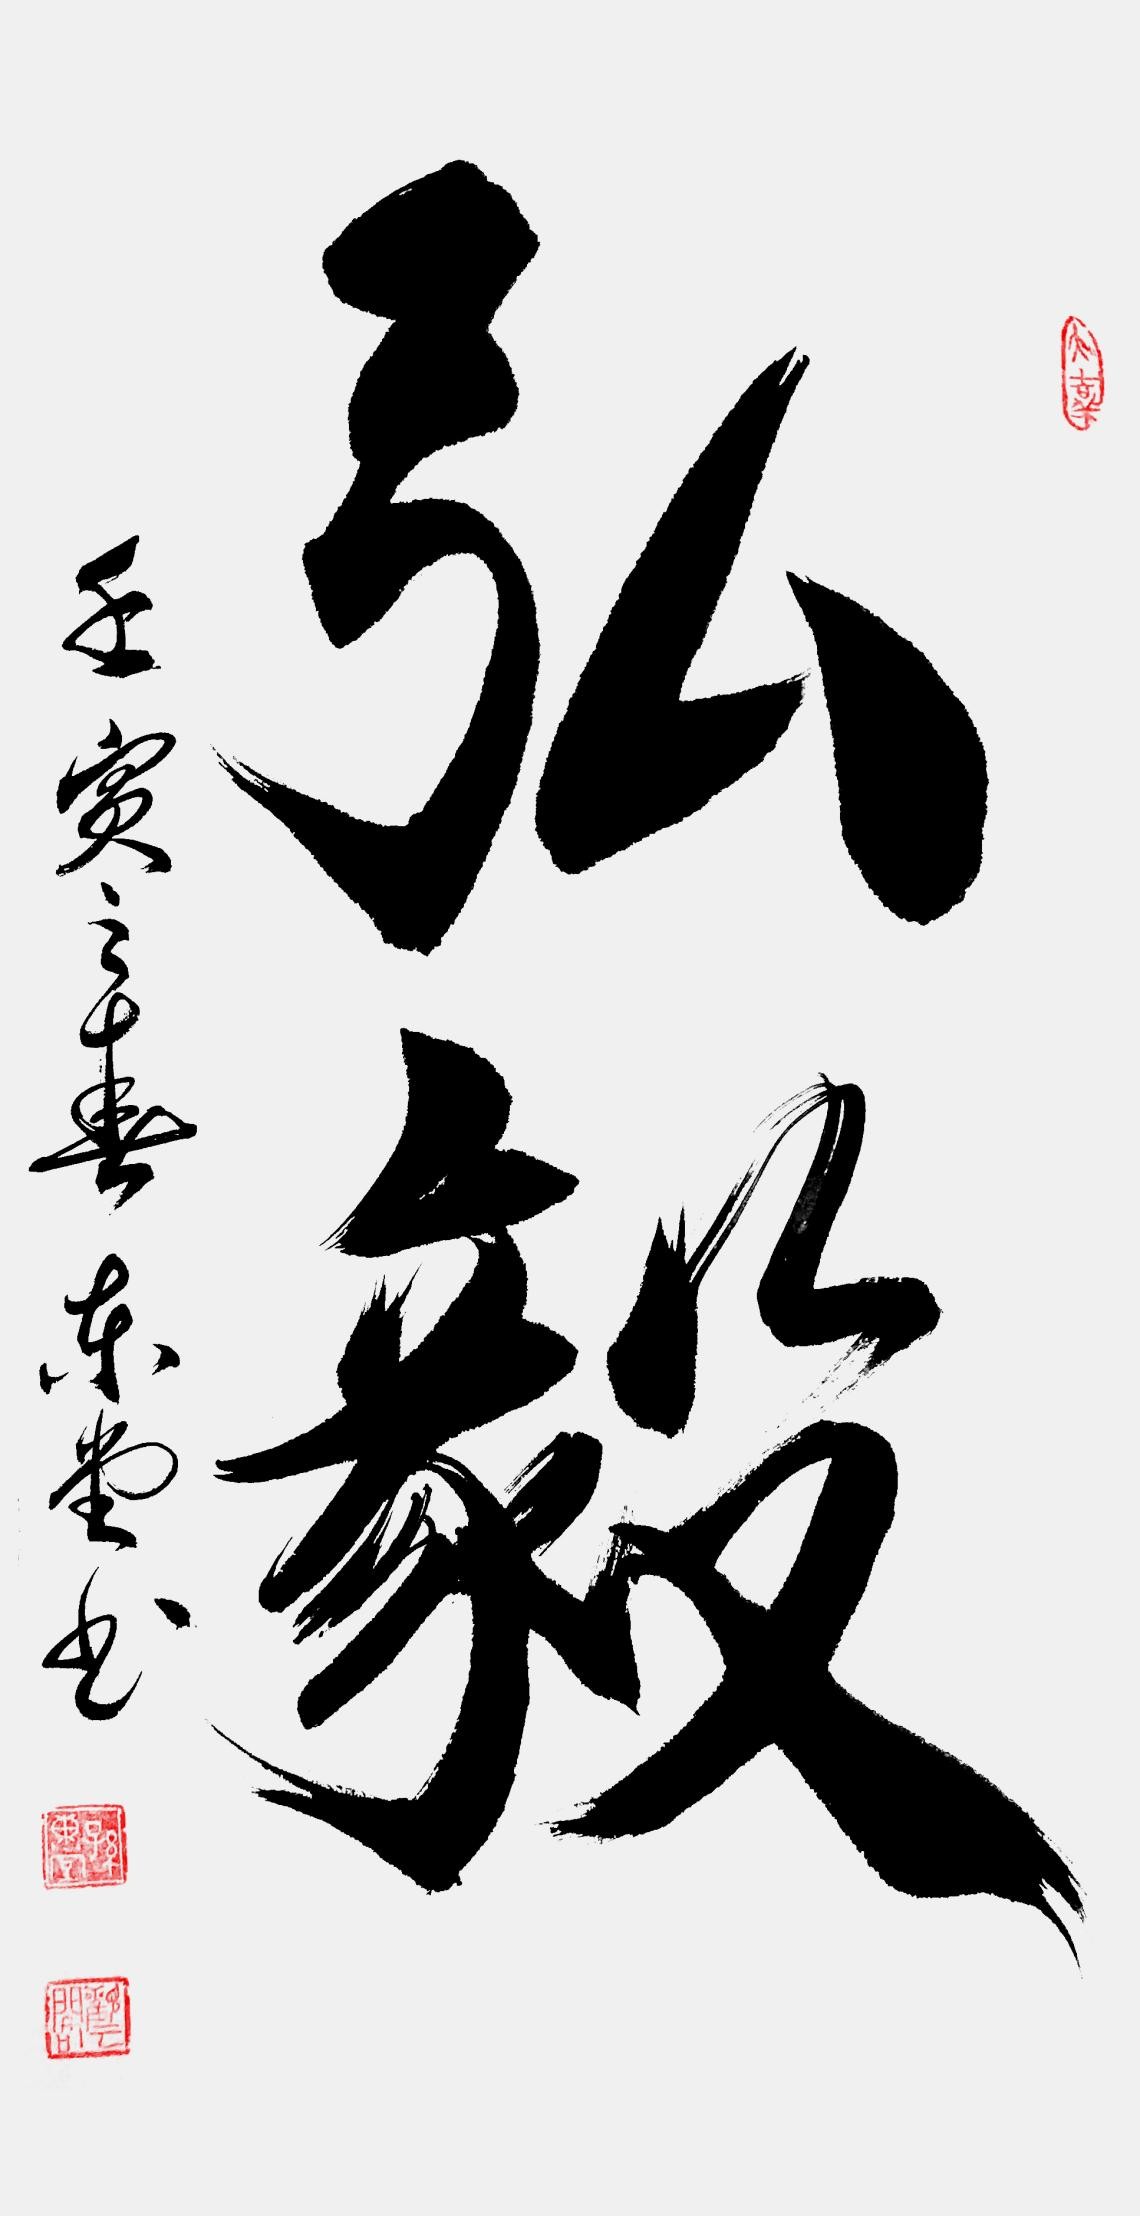 弘毅
壬寅之春 东堂书